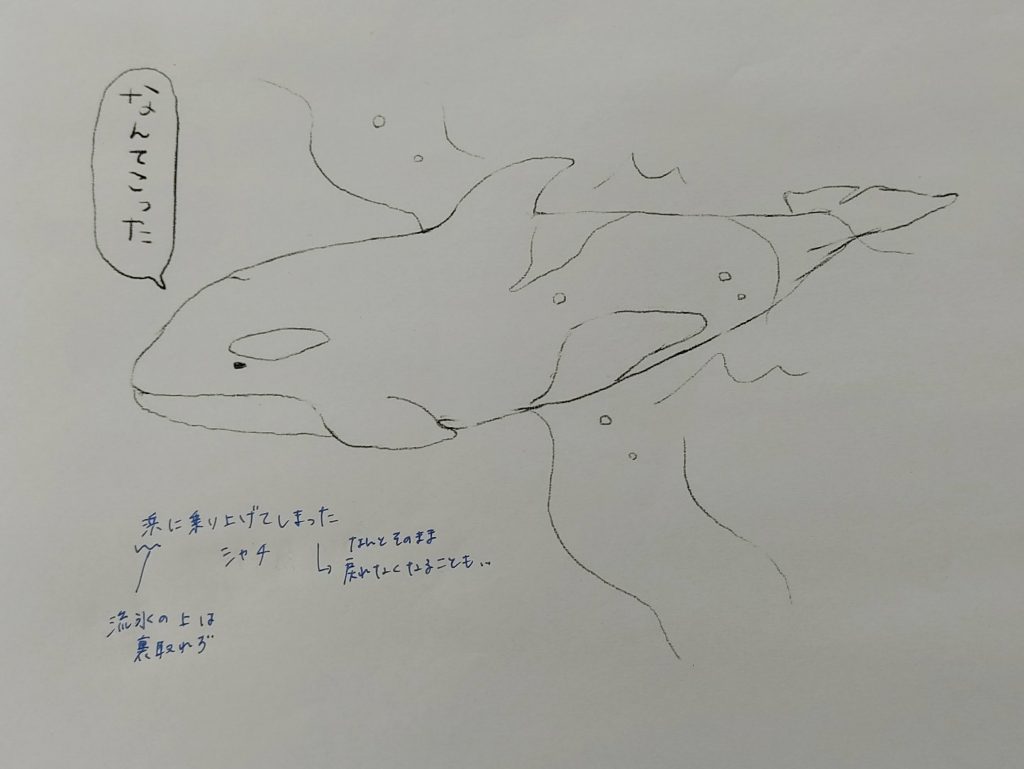 なんてこった
浜に乗り上げてしまった
シャチ
なんとそのまま
戻れなくなることも…
流氷の上は
裏取れず